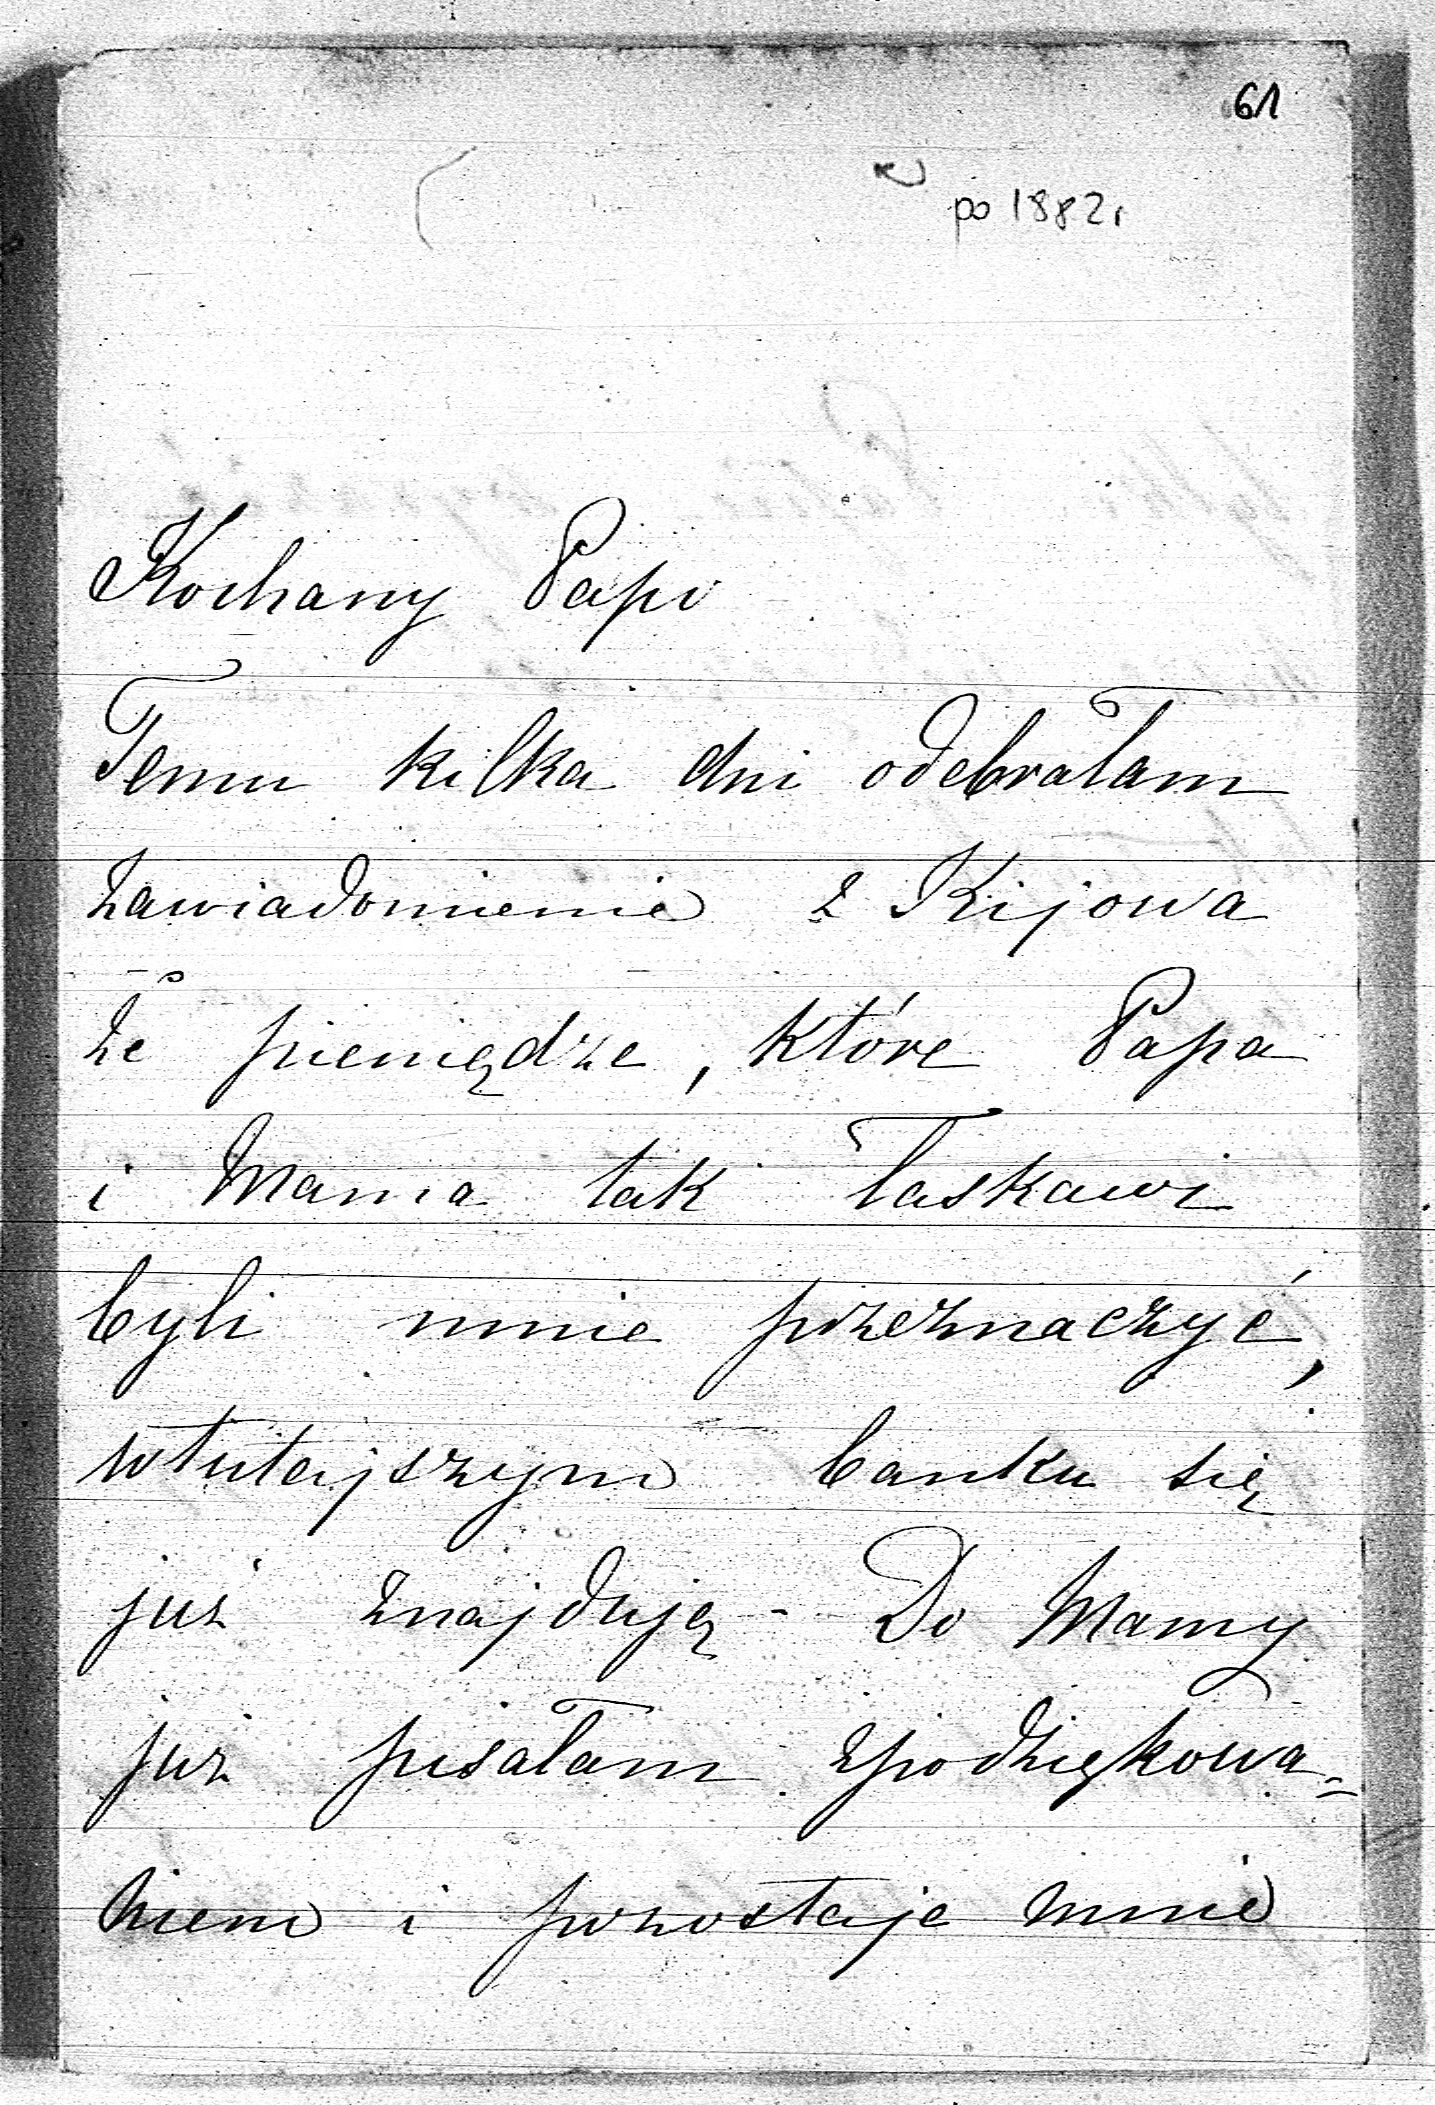 61
po 1882r
Kochany Papo
Temu kilka dni odebrałam
zawiadomienie z Kijowa
że pieniędze, które Papa
i Mama tak łaskawi
byli mnie przeznaczyć,
wtutejszym banku się
już znajdują - Do Mamy
już pisałam zpodziękowa=
niem i pozostaje mnie